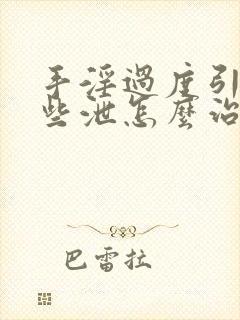 手淫過度引
些泄怎麼治
巴雷拉